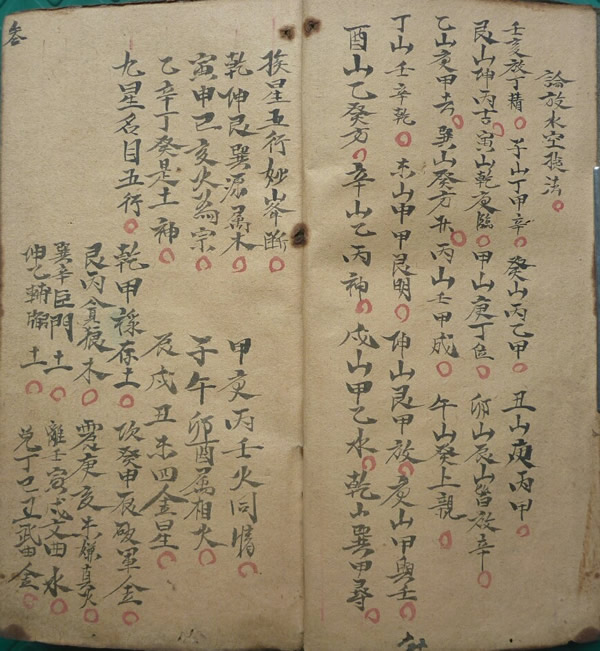 論放水空挨法
壬亥放丁精 子山丁甲辛 癸山丙乙甲 丑山庚丙甲
艮山坤丙吉 寅山乾庚臨 甲山庚丁位 卯山艮山皆放辛
乙山庚甲去 巽山癸方升 丙山壬甲成 午山癸上親
丁山壬辛乾 未山甲甲艮明 坤山艮甲放 庚山甲與壬
酉山乙癸方 辛山乙丙神 戌山甲乙水 乾山巽甲尋
挨星五行妙峯斷
乾坤艮巽源属木 甲庚丙壬火同情
寅申巳亥火為宗 子午卯酉属相火
乙辛丁癸是土神 辰戌丑未四金星
九星名目五行 乾甲祿存土 坎癸申辰破軍金
艮丙貪狼木 震庚亥未廉真火
巽辛巨門土 離壬寅戌文曲水
坤乙輔弼土 兌丁巳丑武曲金
叁